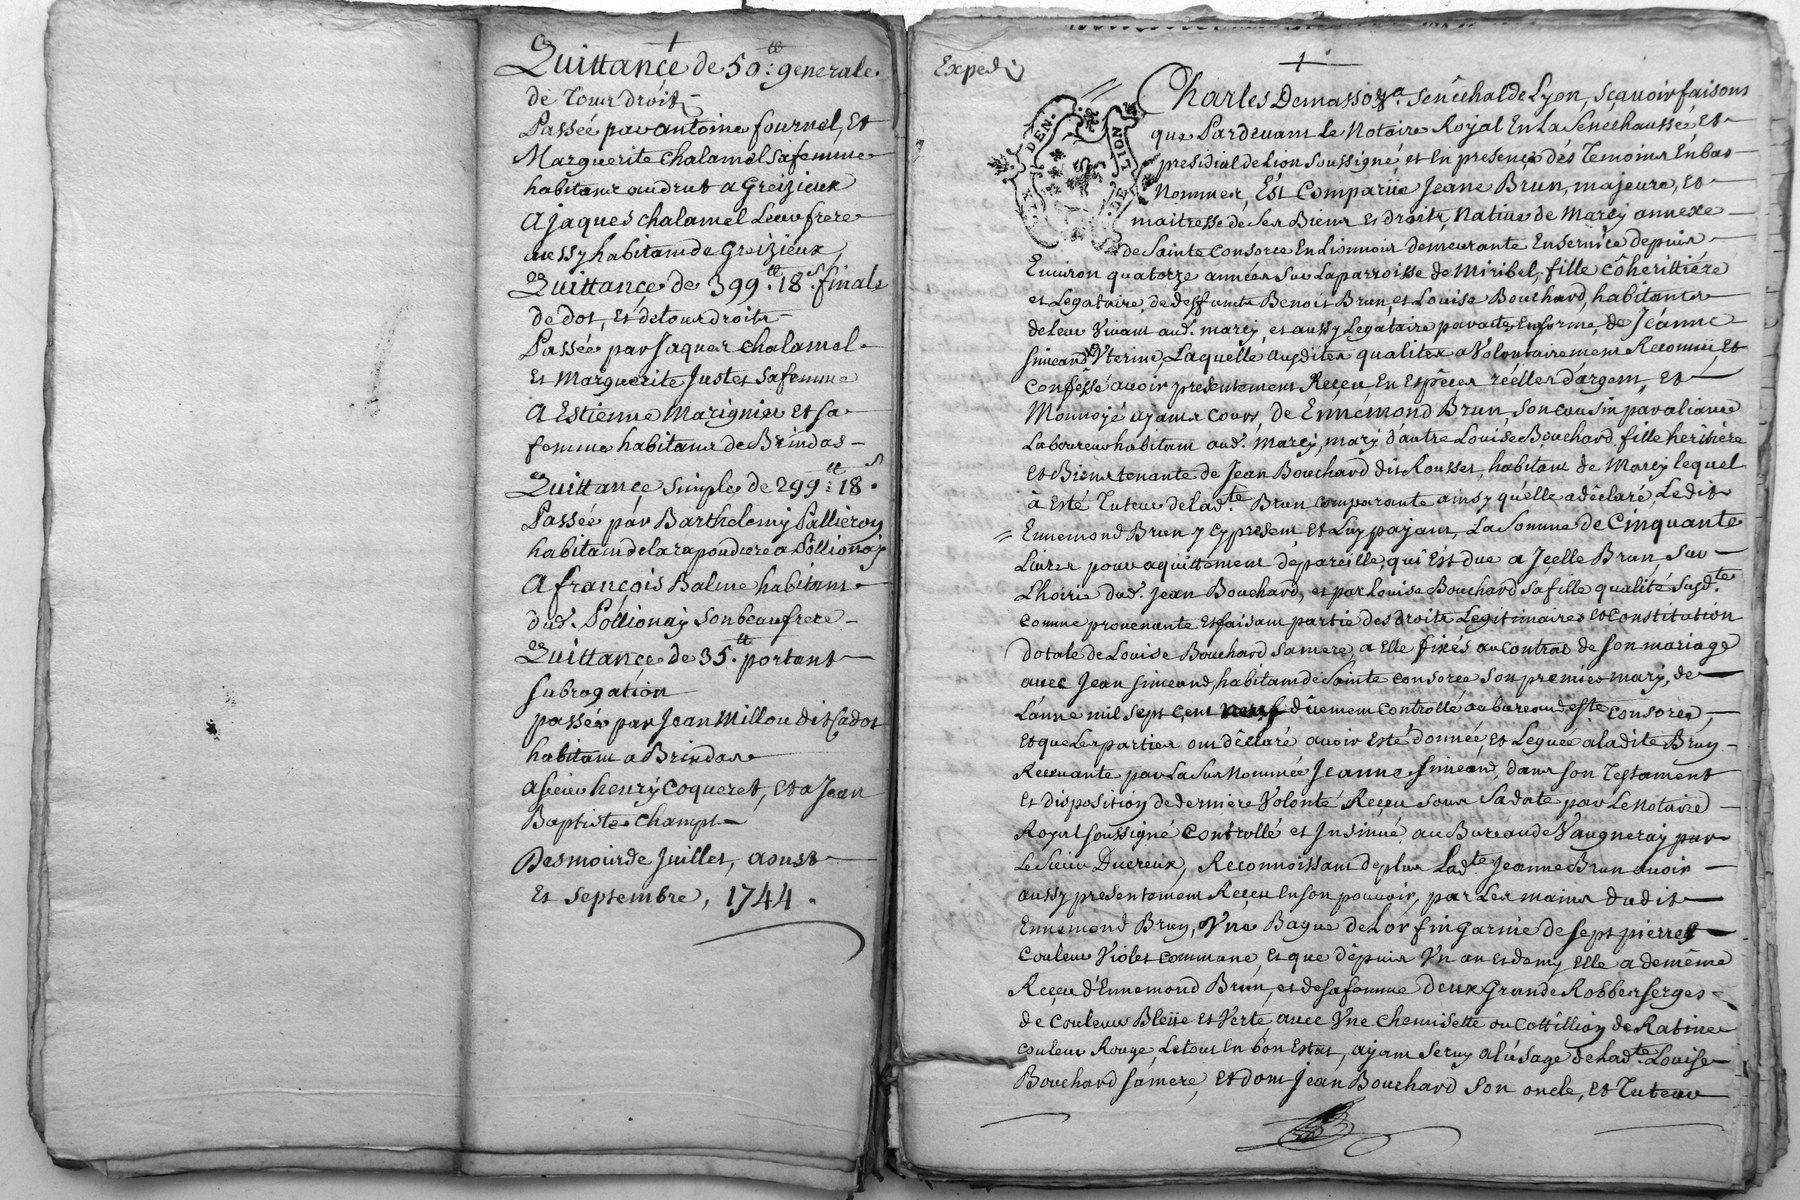 Quittance de 50.tt generale
de Tour droit
Passée par antoine fournel, Et
Marguerite chalamel sa femme
habitans audrut a Greizieux
A jaques chalamel Leur frere
aussy habitant de Greizieux,
Quittance de 399.tt 18.s finale
de dot, Et de tour droits
Passée par Jaques chalamel
Et Marguerite Justet sa femme
A Estienne Marignier et sa
femme habitans de Brindas
Quittance simple de 299.tt 18.s
Passée par Barthelemy Pallieron
habitant de la rapoudiere a Pollionay
A françois Balme habitant
dud. Pollionay son beaufrere
Quittance de 35.tt portant
subrogation
passée par Jean Millou dit Cadot
habitant a Brindas
a sieur henry Coqueret, Et a Jean
Baptiste Champt
Des mois de Juillet, aoust
Et septembre, 1744.
Exped
GEN. DE LION
Charles Demasso sr. senéchal de Lyon, sçavoir faisons
que Pardevant Le Notaire Royal En La Senechaussée Et
presidial de Lion soussigné et En presence des Temoins En bas
Nommer, Est Comparüe Jeane Brun, majeure, Et
maitresse de ses Biens Et droits, Native de Marcy annexe
de Sainte Consorce En Lionnois demeurante En service depuis
Environ quatorze années sur La parroisse de Miribel, fille côherittiére
et Legataire de deffunts Benoit Brun, et Louise Bouchard, habitants
de Leur Vivant aud. marcy, et aussy Legataire par acte En forme, de Jeanne
simeand Vterine, Laquelle ausdites qualitex a Volontairement Reconnu, Et
Confessé avoir presentement Reçeu En Espêces réelles d'argent, Et
Monnoyé ayant Cours, de Ennemond Brun, son cousin par aliance
Laboureur habitant aud. Marcy, mary d'autre Louise Bouchard, fille heritiere
Et Bientenante de Jean Bouchard dit Rousset, habitant de Marcy lequel
à Esté Tuteur de Lad.te Brun Comparante ainsy qu'elle a dêclaré, Ledit
= Ennemond Brun y Cy present, Et Luy payant, La Somme de Cinquante
Livres pour aquittement de pareille, qui Est due a Jcelle Brun, sur
L'hoirie dud. Jean Bouchard, et par Louise Bouchard sa fille qualité susd.te
Comme provenante Et faisant partie des droits Legitimaires Et Constitution
dotale de Louise Bouchard sa mere, a Elle fixés au Contrat de son mariage
avec Jean simeand, habitant de Sainte Consorce son premier mary, de
L'anne mil sept Cent neuf dûement Controllé au bureau de ste Consorce,
Et que Les parties ont dêclaré avoir Esté donnée, Et Leguée a ladite Brun
Recevante par La sus Nommée Jeanne simeand, dans son Testament
Et disposition de derniere Volonté Reçeu sous sa date par Le Notaire
Royal soussigné Controllé et Jnsinué au Bureau de Vaugneray par
Le sieur Ducreux, Reconnoissant de plus Lad.te Jeanne Brun avoir
aussy presentement Reçeu En son pouvoir, par Les mains dudit
Ennemond Brun, Vne Bague de L'or fin garnie de sept pierres
Couleur Violet commune, Et que dêpuis Vn an Et demy Elle a de même
Reçeu d'Ennemond Brun, et de sa femme deux Grande Robbes serges
de Couleur Bleüe et Verte, avec Vne chemisette ou Cottillion de Ratine
couleur Rouge, Le tout En bon Estat, ayant servy a l'usage de Lad.te Louise
Bouchard sa mere, Et dont Jean Bouchard son oncle, Et Tuteur